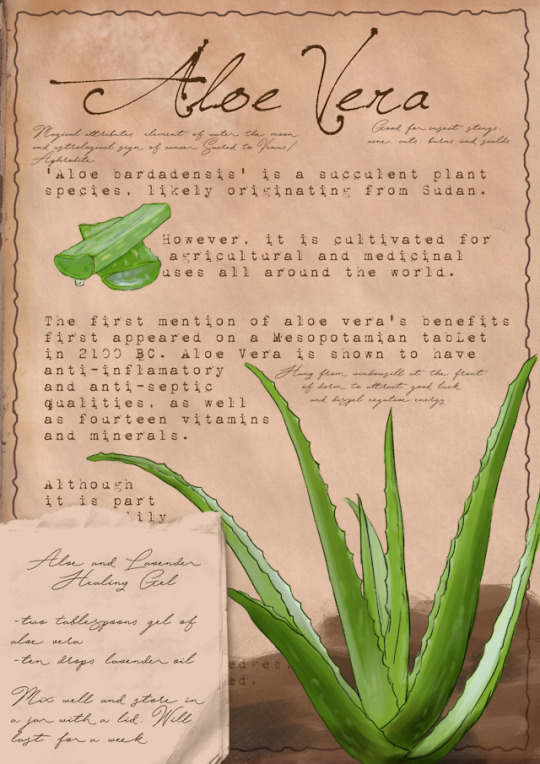 Aloe Vera
Magical attributes element of water the moon
and astrological sign of cancer Sacred to Venus/
Aphrodite
Good for insect stings,
acne, cuts, burns and scalds
'Aloe bardadensis' is a succulent plant
species, likely originating from Sudan.
However, it is cultivated for
agricultural and medicinal
uses all around the world.
The first mention of aloe vera's benefits
first appeared on a Mesopotamian tabLet
in 2100 BC. Aloe Vera is shown to have
anti-inflamatory
and anti-septic
qualities, as well
as fourteen vitamins
and minerals.
Hung from windowsill at the front
of home to attract good luck
and negative energy
Although
it is part
ily
edges,
ed.
Aloe and Lavender
Healing Gel
-two tablespoons gel of
aloe vera
-ten drops lavender oil
Mix well and store in
a jar with a lid. Will
last for a week